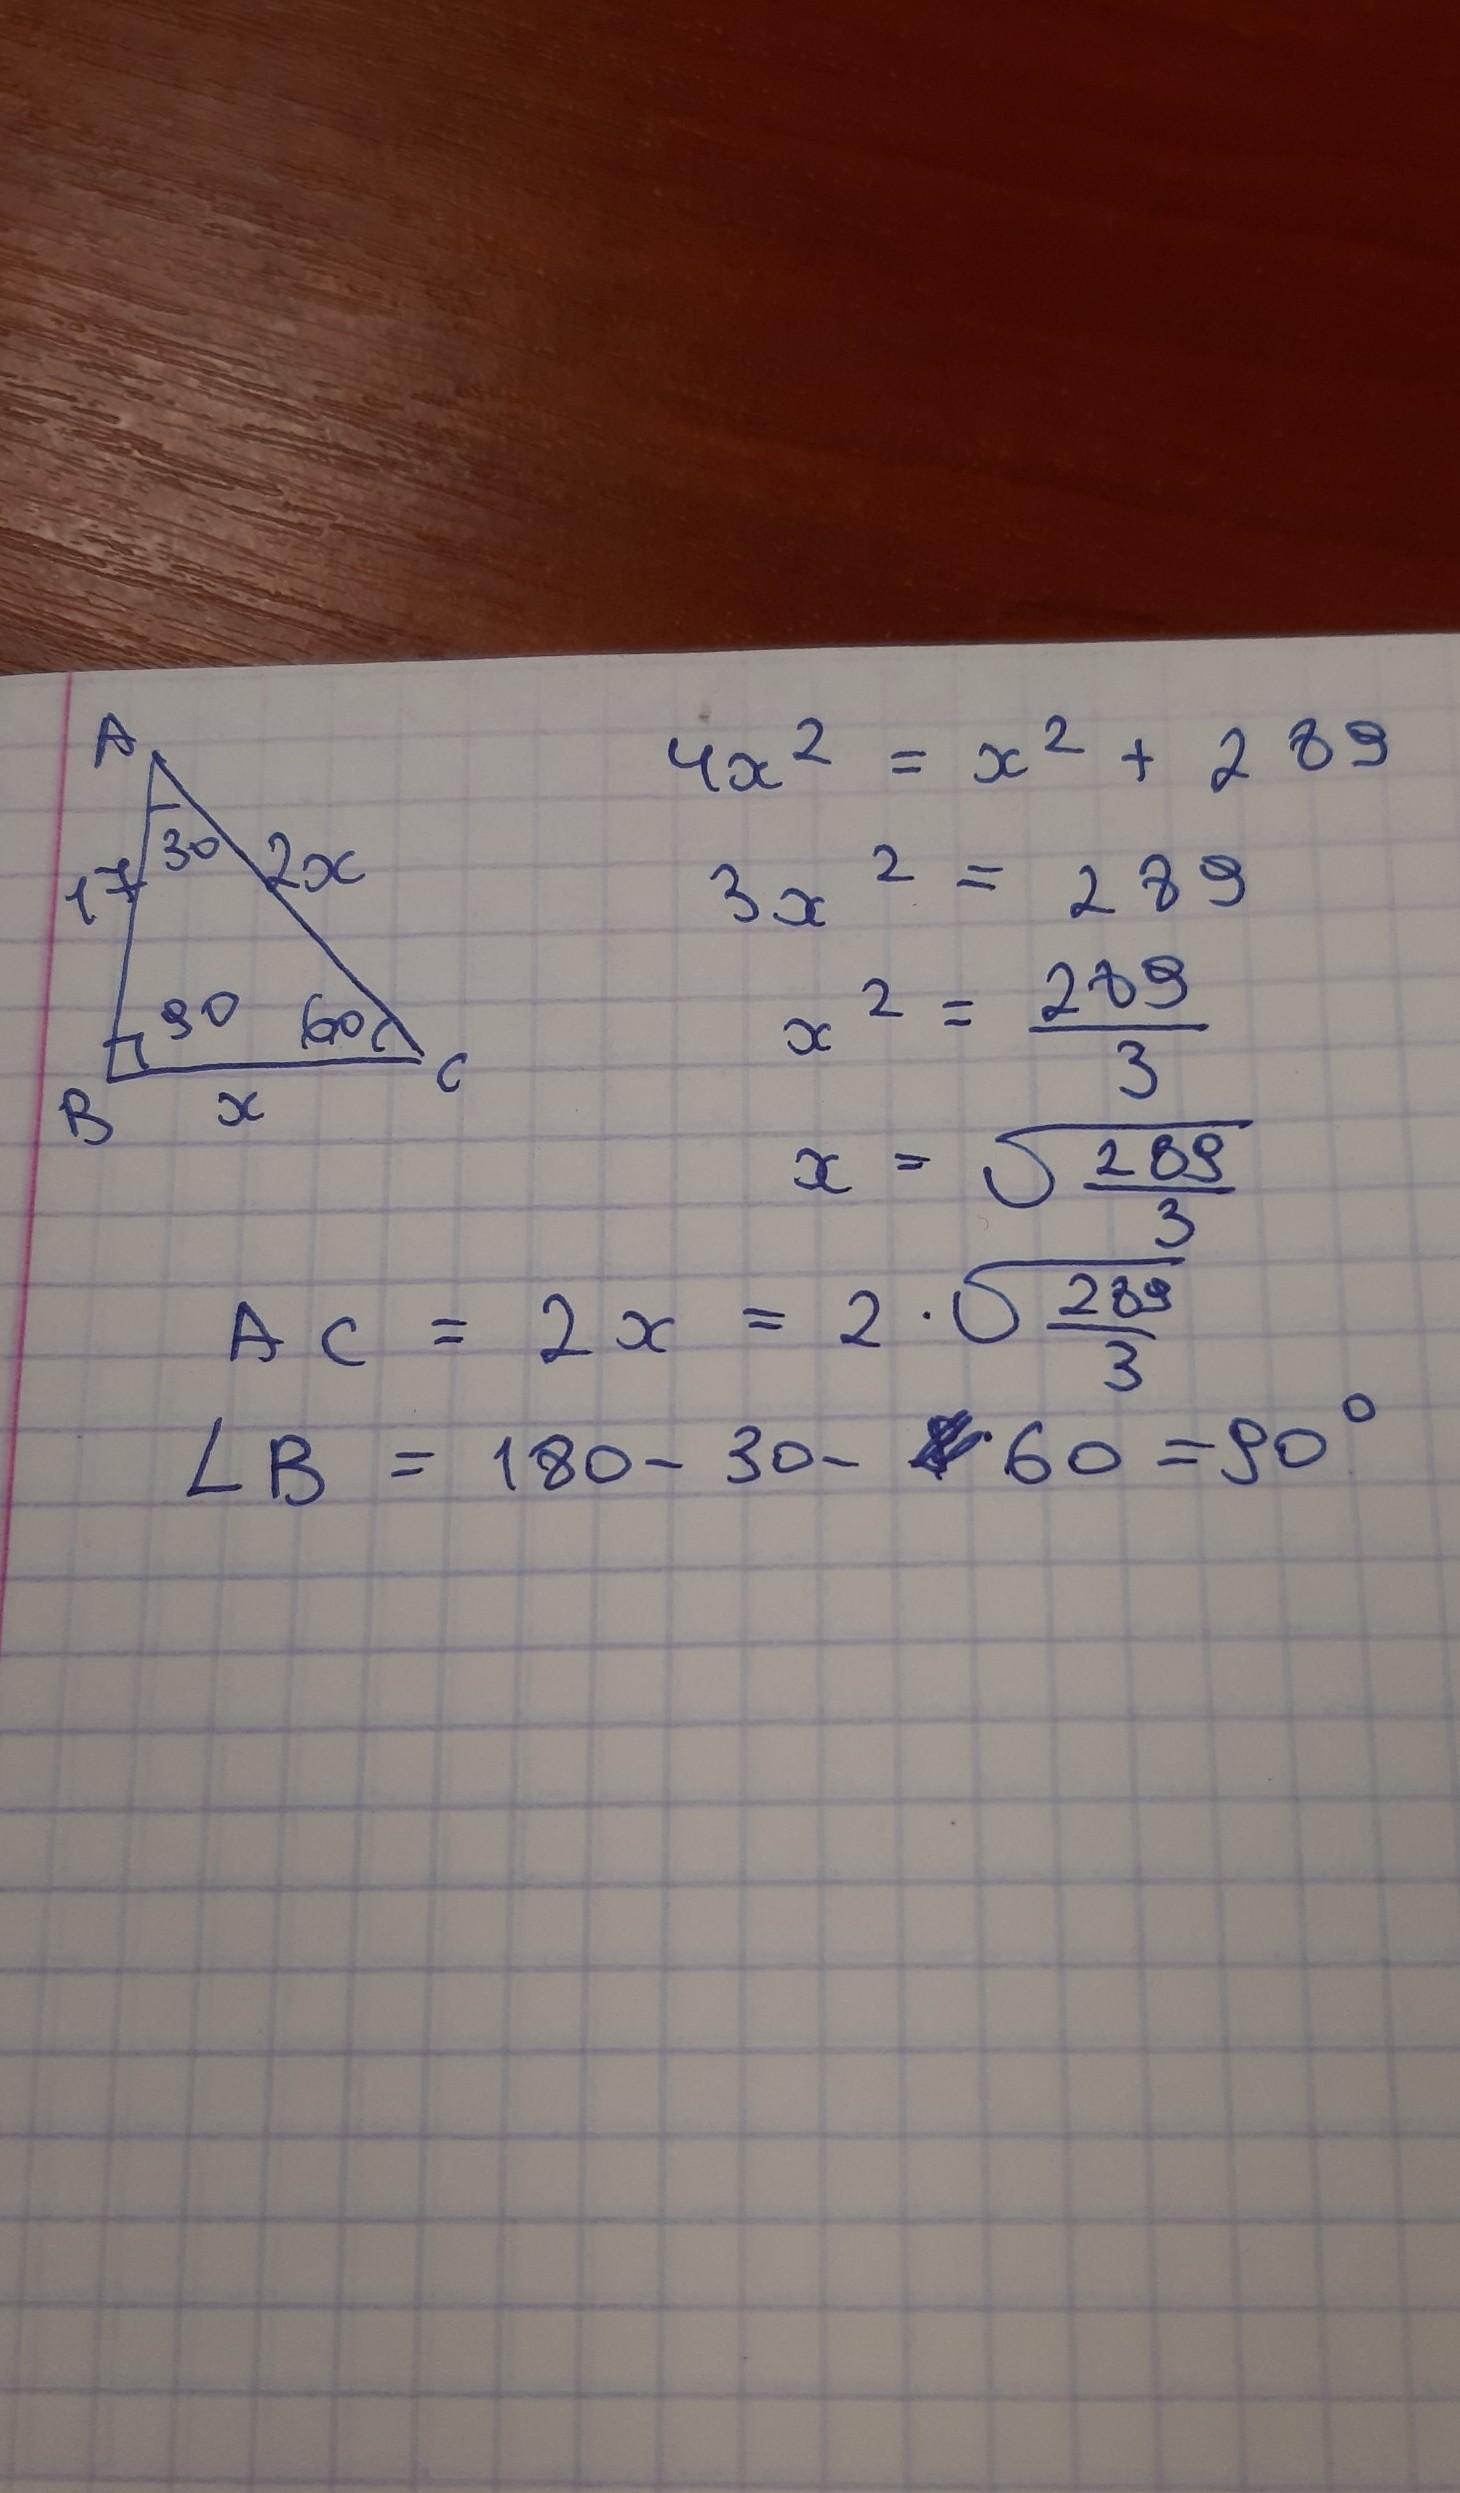 A
30
17
2x
90
60
B
x
C
4x² = x² + 289
3x² = 289
x² = 289/3
x = √(289/3)
AC = 2x = 2·√(289/3)
∠B = 180 - 30 - 60 = 90°